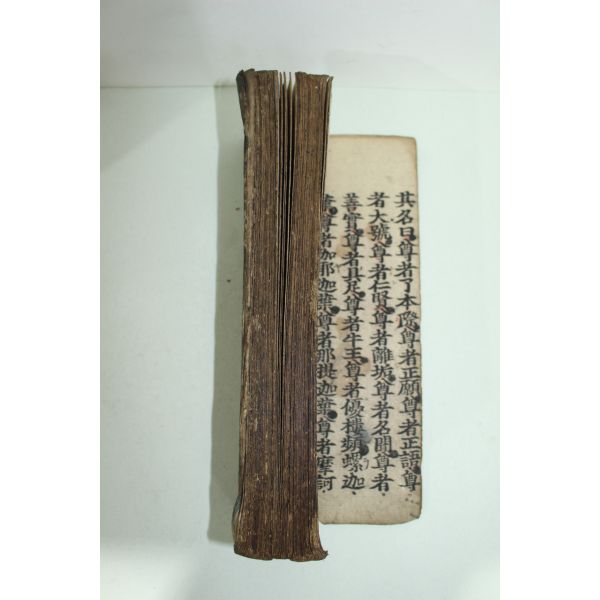 其名曰尊者了本際尊者正願尊者正語尊
者大號尊者仁賢尊者離垢尊者名聞尊者
善實尊者具足尊者牛王尊者優樓頻螺迦
葉尊者伽耶迦葉尊者那提迦葉尊者摩訶